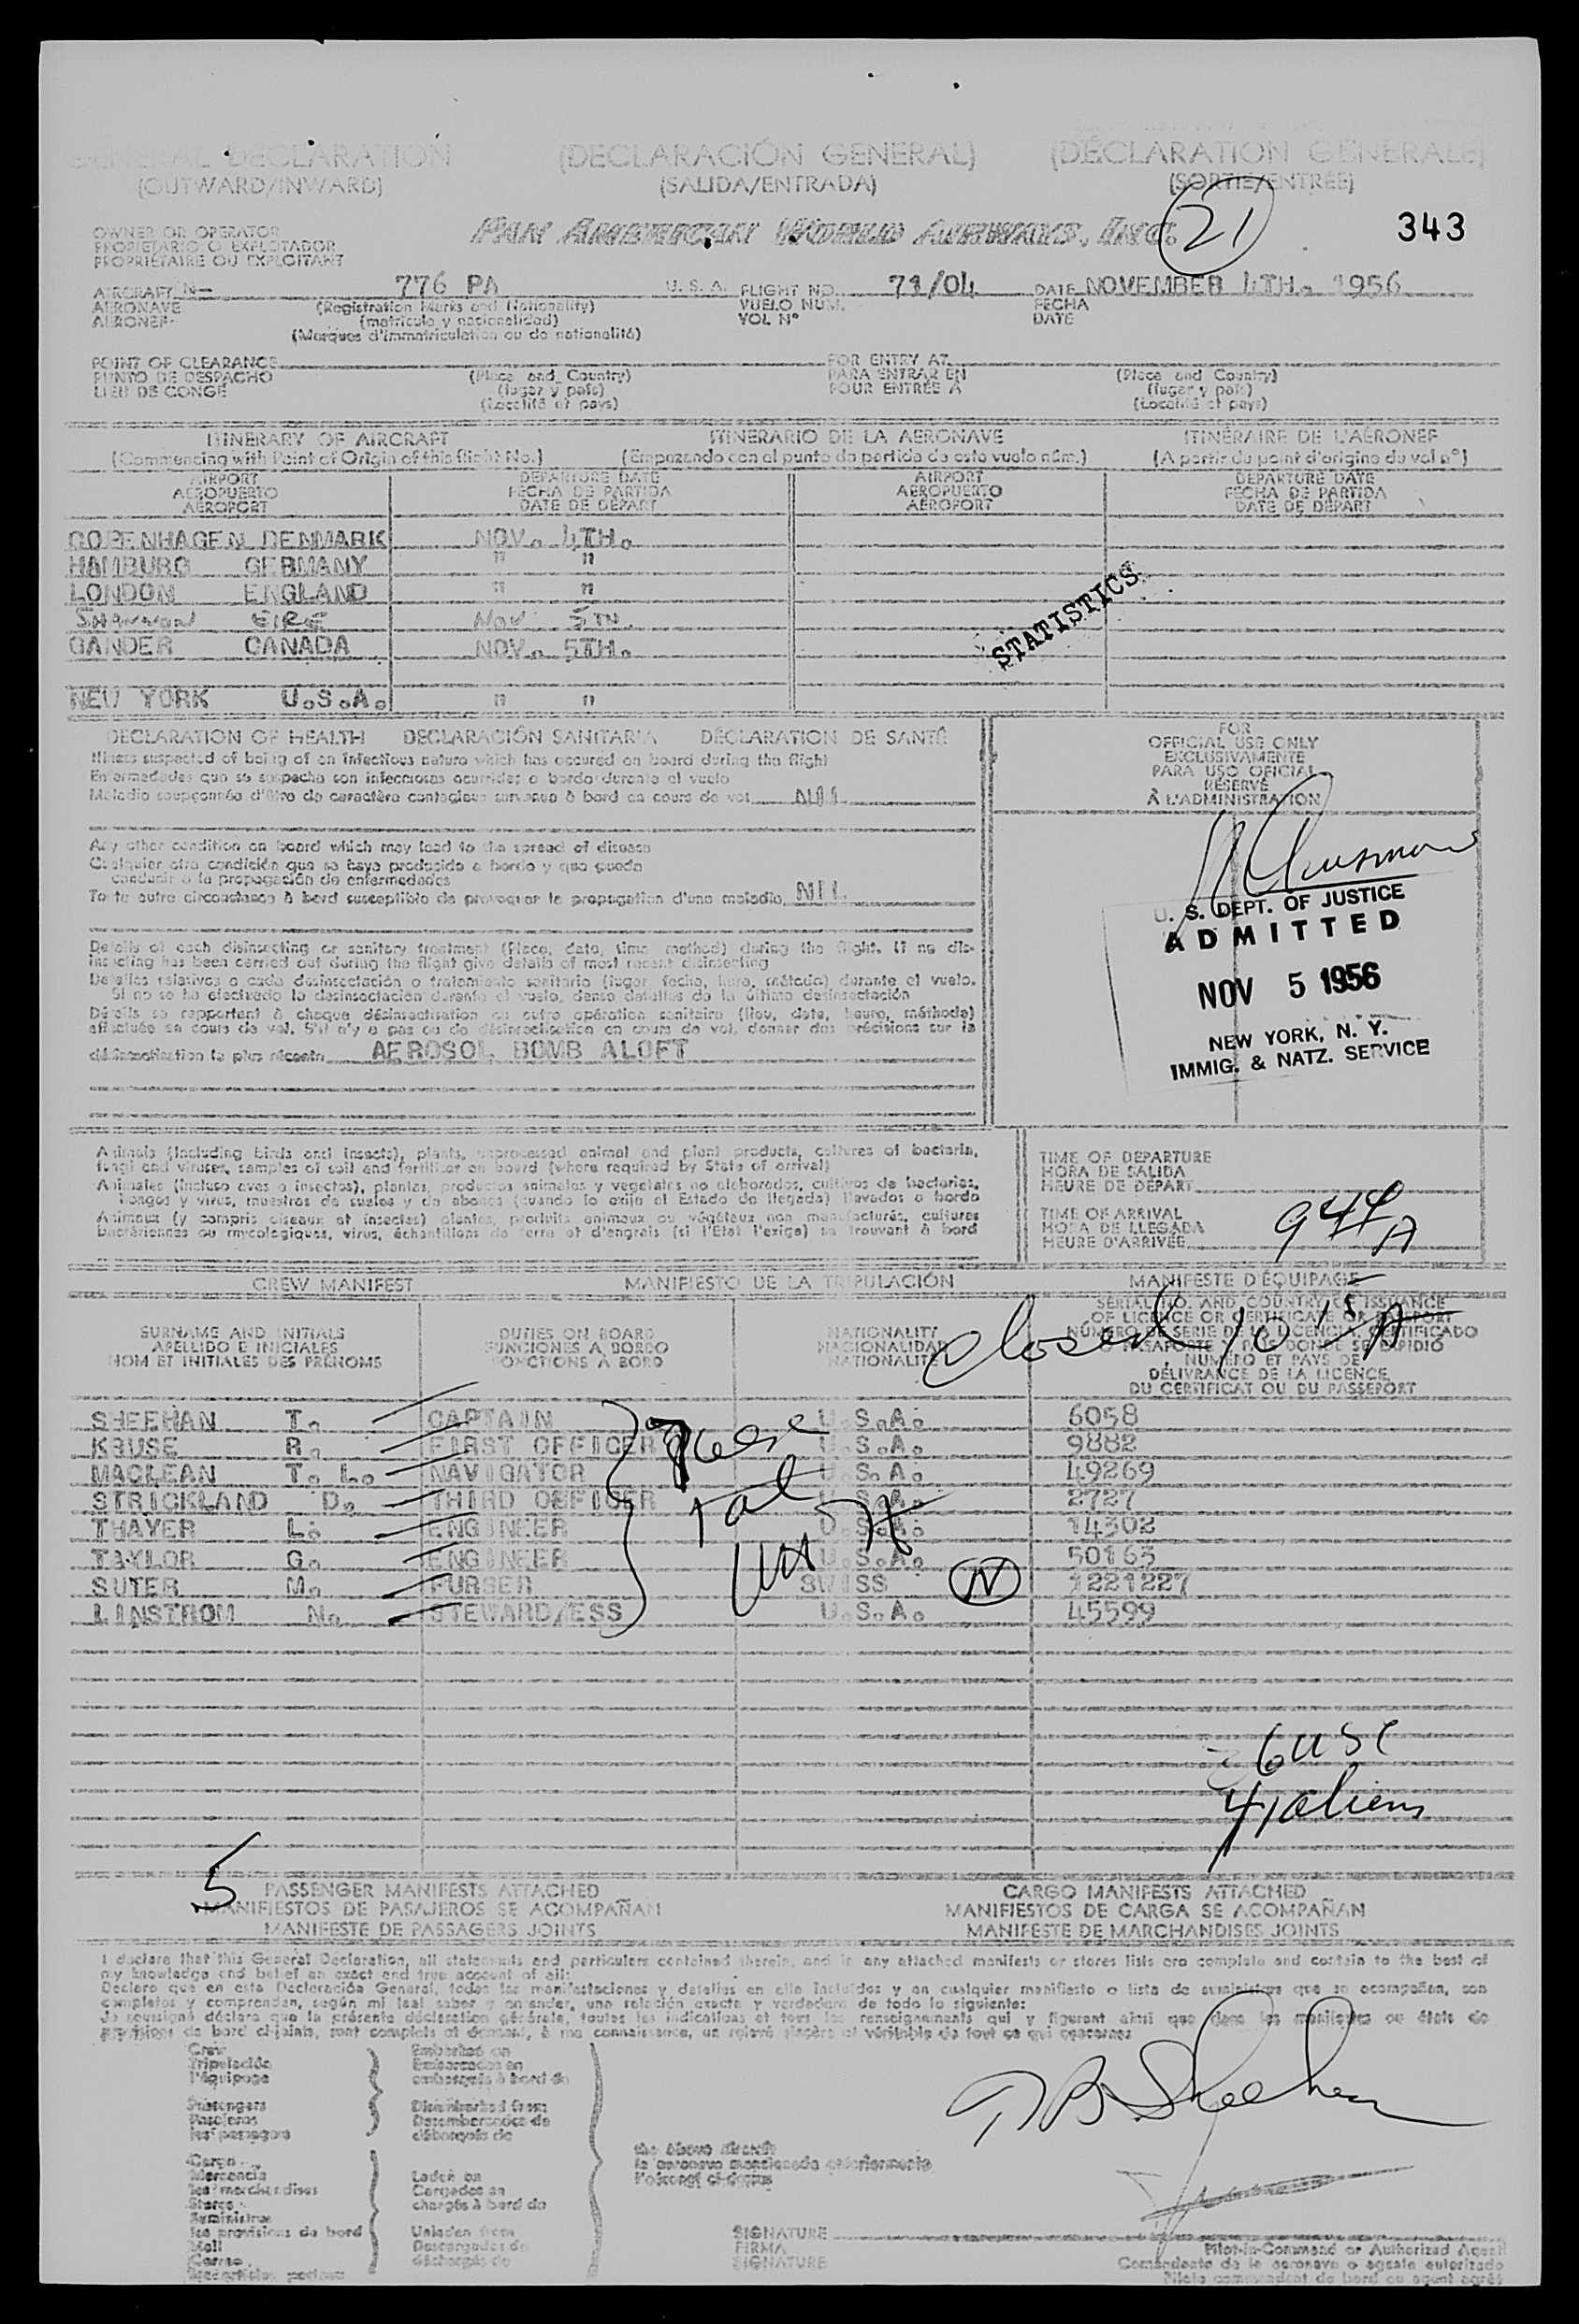 GENERAL DECLARATION (DECLARACIÓN GENERAL) (DÉCLARATION GENERALE)
(OUTWARD/INWARD) (SALIDA/ENTRADA) (SORTIE/ENTRÉE)
OWNER OR OPERATOR PAN AMERICAN WORLD AIRWAYS, INC. 21 343
PROPIETARIO O EXPLOTADOR
PROPRIÉTAIRE OU EXPLOITANT
AIRCRAFT N- 776 PA U. S. A. FLIGHT NO. 71/04 DATE NOVEMBER 4TH. 1956
AERONAVE (Registration Marks and Nationality) VUELO NUM. FECHA
AERONEF (matrícula y nacionalidad) VOL Nº DATE
(Marques d'immatriculation ou de nationalité)
POINT OF CLEARANCE FOR ENTRY AT
PUNTO DE DESPACHO (Place and Country) PARA ENTRAR EN (Place and Country)
LIEU DE CONGE (lugar y país) POUR ENTRÉE A (lugar y país)
(Localité et pays) (Localité et pays)
ITINERARY OF AIRCRAFT ITINERARIO DE LA AERONAVE ITINÉRAIRE DE L'AÉRONEF
(Commencing with Point of Origin of this flight No.) (Empezando con el punto de partida de este vuelo núm.) (A partir du point d'origine du vol nº)
AIRPORT DEPARTURE DATE AIRPORT DEPARTURE DATE
AEROPUERTO FECHA DE PARTIDA AEROPUERTO FECHA DE PARTIDA
AÉROPORT DATE DE DÉPART AÉROPORT DATE DE DÉPART
COPENHAGEN DENMARK NOV. 4TH.
HAMBURG GERMANY " "
LONDON ENGLAND " "
SHANNON EIRE NOV 5TH
GANDER CANADA NOV. 5TH.
STATISTICS
NEW YORK U.S.A. " "
DECLARATION OF HEALTH DECLARACIÓN SANITARIA DÉCLARATION DE SANTÉ
Illness suspected of being of an infectious nature which has occured on board during the flight
Enfermedades que se sospecha son infecciosas ocurridas a bordo durante el vuelo
Maladie soupçonnée d'être de caractère contagieux survenue à bord en cours de vol NIL
Any other condition on board which may lead to the spread of disease
Cualquier otra condición que se haya producido a bordo y que pueda
conducir a la propagación de enfermedades
Toute autre circonstance à bord susceptible de provoquer la propagation d'une maladie NIL
Details of each disinsecting or sanitary treatment (Place, date, time, method) during the flight. If no dis-
insecting has been carried out during the flight give details of most recent disinsecting
Detalles relativos a cada desinsectación o tratamiento sanitario (lugar, fecha, hora, método) durante el vuelo.
Si no se ha efectuado la desinsectación durante el vuelo, dense detalles de la última desinsectación
Détails se rapportant à chaque désinsectisation ou autre opération sanitaire (lieu, date, heure, méthode)
effectuée en cours de vol. S'il n'y a pas eu de désinsectisation en cours de vol, donner des précisions sur la
désinsectisation la plus récente AEROSOL BOMB ALOFT
FOR
OFFICIAL USE ONLY
EXCLUSIVAMENTE
PARA USO OFICIAL
RÉSERVÉ
À L'ADMINISTRATION
U. S. DEPT. OF JUSTICE
ADMITTED
NOV 5 1956
NEW YORK, N. Y.
IMMIG. & NATZ. SERVICE
Animals (including birds and insects), plants, unprocessed animal and plant products, cultures of bacteria,
fungi and viruses, samples of soil and fertilizer on board (where required by State of arrival)
Animales (incluso aves o insectos), plantas, productos animales y vegetales no elaborados, cultivos de bacterias,
hongos y virus, muestras de suelos y de abonos (cuando lo exija el Estado de llegada) llevados a bordo
Animaux (y compris oiseaux et insectes) plantes, produits animaux ou végétaux non manufacturés, cultures
bactériennes ou mycologiques, virus, échantillons de terre et d'engrais (si l'Etat l'exige) se trouvant à bord
TIME OF DEPARTURE
HORA DE SALIDA
HEURE DE DÉPART
TIME OF ARRIVAL
HORA DE LLEGADA
HEURE D'ARRIVÉE 944 A
CREW MANIFEST MANIFIESTO DE LA TRIPULACIÓN MANIFESTE D'ÉQUIPAGE
Closed 1015 A
SURNAME AND INITIALS DUTIES ON BOARD NATIONALITY SERIAL NO. AND COUNTRY OF ISSUANCE
APELLIDO E INICIALES FUNCIONES A BORDO NACIONALIDAD OF LICENCE OR CERTIFICATE OR PASSPORT
NOM ET INITIALES DES PRÉNOMS FONCTIONS A BORD NATIONALITÉ NÚMERO DE SERIE DE LA LICENCIA, CERTIFICADO
O PASAPORTE Y PAÍS DONDE SE EXPIDIÓ
NUMÉRO ET PAYS DE
DÉLIVRANCE DE LA LICENCE,
DU CERTIFICAT OU DU PASSEPORT
SHEEHAN T. CAPTAIN U.S.A. 6058
KRUSE R. FIRST OFFICER U.S.A. 9882
MACLEAN T. L. NAVIGATOR U.S.A. 49269
STRICKLAND D. THIRD OFFICER U.S.A. 2727
THAYER L. ENGINEER U.S.A. 14302
TAYLOR G. ENGINEER U.S.A. 50163
SUTER M. PURSER SWISS N 1221227
LINSTROM N. STEWARD/ESS U.S.A. 45599
6 USC
41 aliens
5 PASSENGER MANIFESTS ATTACHED CARGO MANIFESTS ATTACHED
MANIFIESTOS DE PASAJEROS SE ACOMPAÑAN MANIFIESTOS DE CARGA SE ACOMPAÑAN
MANIFESTE DE PASSAGERS JOINTS MANIFESTE DE MARCHANDISES JOINTS
I declare that this General Declaration, all statements and particulars contained therein, and in any attached manifests or stores lists are complete and contain to the best of
my knowledge and belief an exact and true account of all:
Declaro que en esta Declaración General, todas las manifestaciones y detalles en ella incluídos y en cualquier manifiesto o lista de suministros que se acompañan, son
completos y comprenden, según mi leal saber y entender, una relación exacta y verdadera de todo lo siguiente:
Je soussigné déclare que la présente déclaration générale, toutes les indications et tous les renseignements qui y figurent ainsi que dans les manifestes ou états de
provisions de bord ci-joints, sont complets et donnent, à ma connaissance, un relevé sincère et véritable de tout ce qui concerne:
Crew Embarked on
Tripulación Embarcados en
l'équipage embarqués à bord de
Passengers Disembarked from
Pasajeros Desembarcados de
les passagers débarqués de
T B Sheehan
the above aircraft
la aeronave mencionada anteriormente
l'aéronef ci-dessus
Cargo
Mercancía Laden on
les marchandises Cargados en
Stores chargés à bord de
Suministros
les provisions de bord Unladen from
Mail Descargados de
Correo déchargés de
SIGNATURE
FIRMA Pilot-in-Command or Authorized Agent
SIGNATURE Comandante de la aeronave o agente autorizado
Pilote commandant de bord ou agent agréé